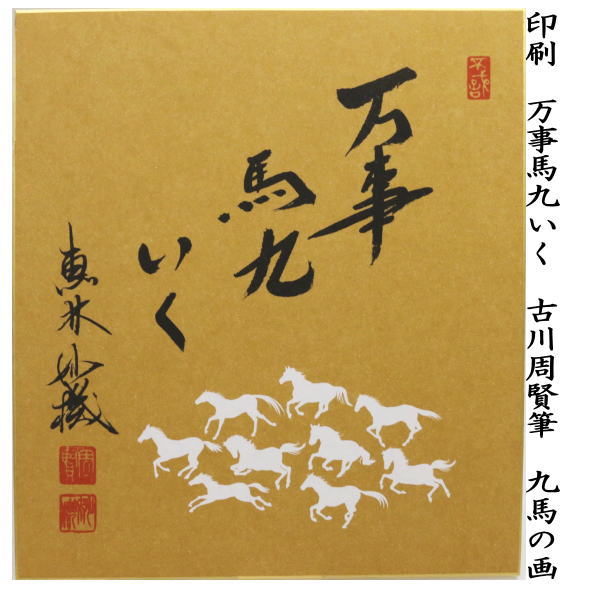 印刷　万事馬九いく　古川周賢筆　九馬の画
万事
馬九
いく
恵林